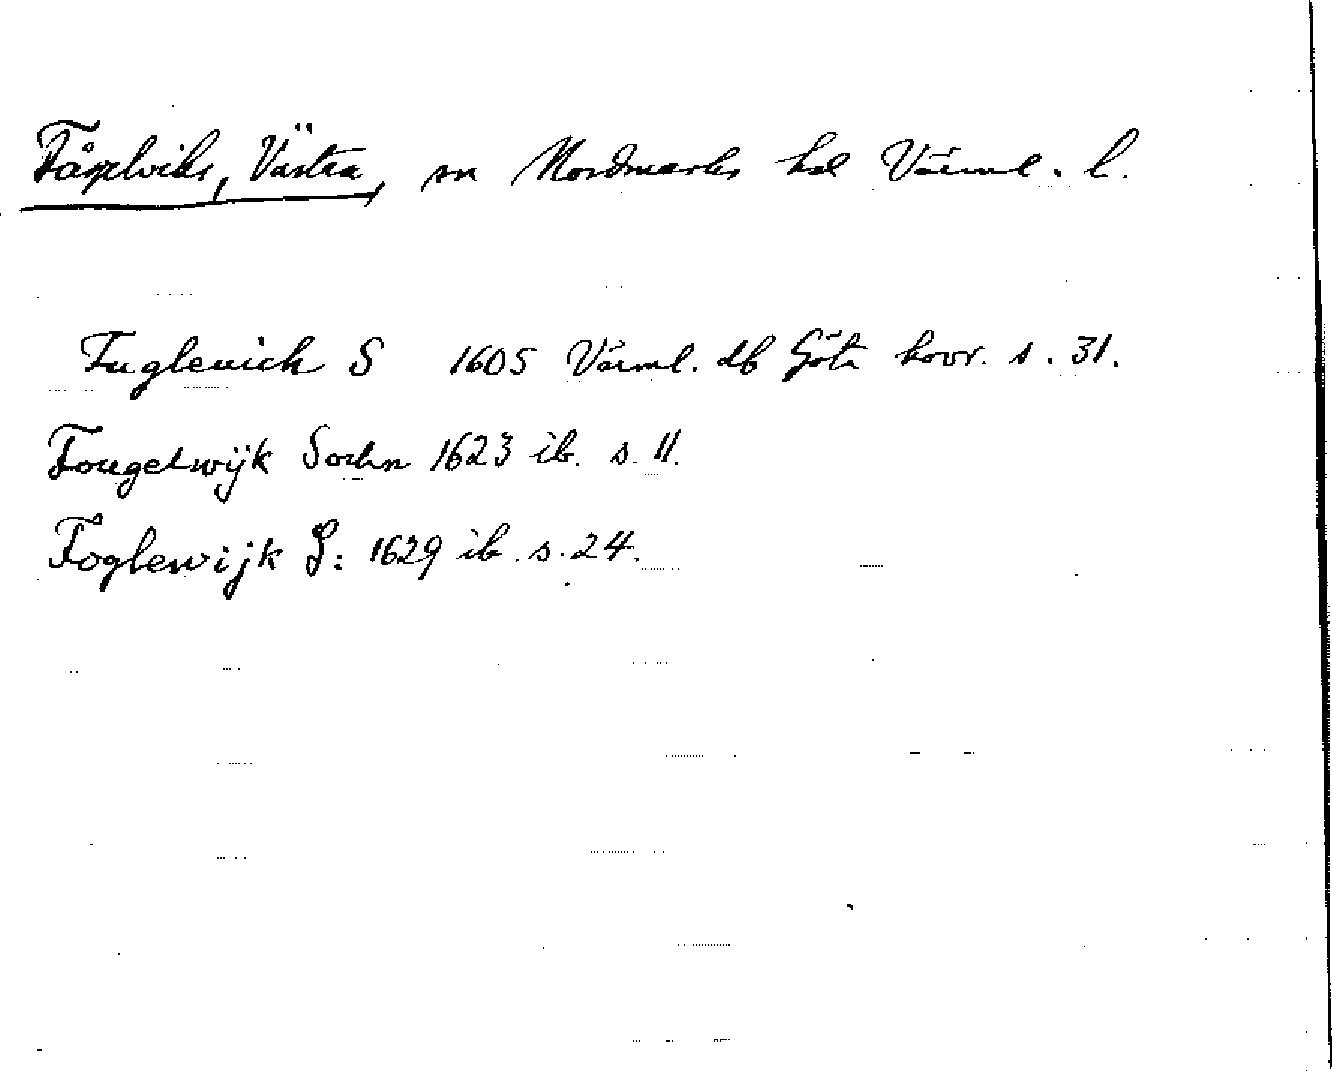 Fågelviks, Västra, sn Nordmarks hd Värml. l.
Fugleuich S 1605 Värml. db Göta hovr. s. 31.
Fougelwijk Sochn 1623 ib. s. 11.
Foglewijk S: 1629 ib. s. 24.